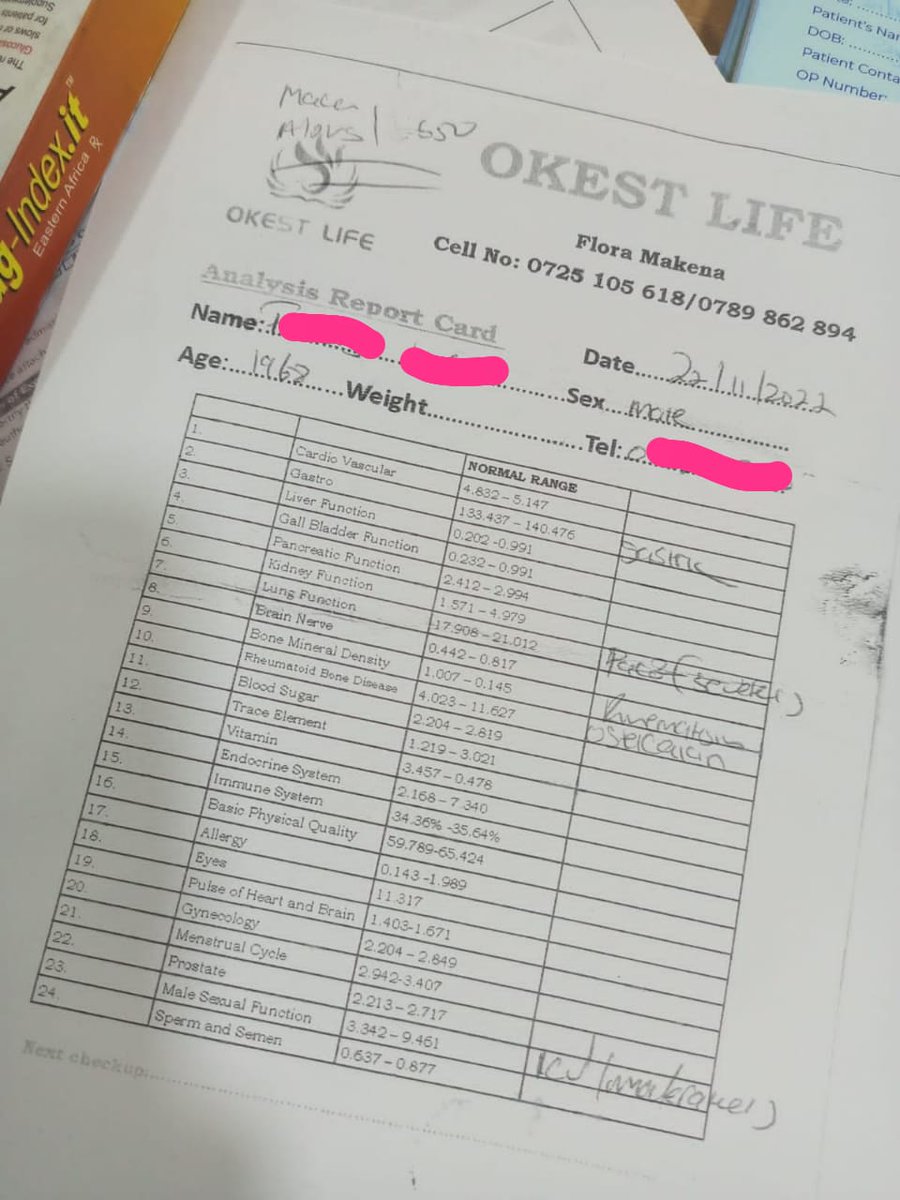 The re
slows or s
for patients
Supplem
Glucosa
g-Index.it™
Eastern Africa
Patient's Nar
DOB:
Patient Conta
OP Number:
650
OKEST LIFE
OKEST LIFE
Flora Makena
Cell No: 0725 105 618/0789 862 894
Analysis Report Card
Name:
Date 22/11/2022
Age: 1968 Weight Sex male
Tel:
NORMAL RANGE
1. Cardio Vascular 4.832 – 5.147
2. Gastro 133.437 – 140.476
3. Liver Function 0.202 -0.991
4. Gall Bladder Function 0.232 – 0.991
5. Pancreatic Function 2.412 – 2.994
6. Kidney Function 1.571 – 4.979
7. Lung Function 17.908 – 21.012
8. Brain Nerve 0.442 – 0.817
9. Bone Mineral Density 1.007 – 0.145
10. Rheumatoid Bone Disease 4.023 – 11.627
11. Blood Sugar 2.204 – 2.819
12. Trace Element 1.219 – 3.021
13. Vitamin 3.457 – 0.478
14. Endocrine System 2.168 – 7.340
15. Immune System 34.36% -35.64%
16. Basic Physical Quality 59.789-65.424
17. Allergy 0.143 -1.989
18. Eyes 11.317
19. Pulse of Heart and Brain 1.403-1.671
20. Gynecology 2.204 – 2.849
21. Menstrual Cycle 2.942-3.407
22. Prostate 2.213 – 2.717
23. Male Sexual Function 3.342 – 9.461
24. Sperm and Semen 0.637 – 0.877
Next checkup: